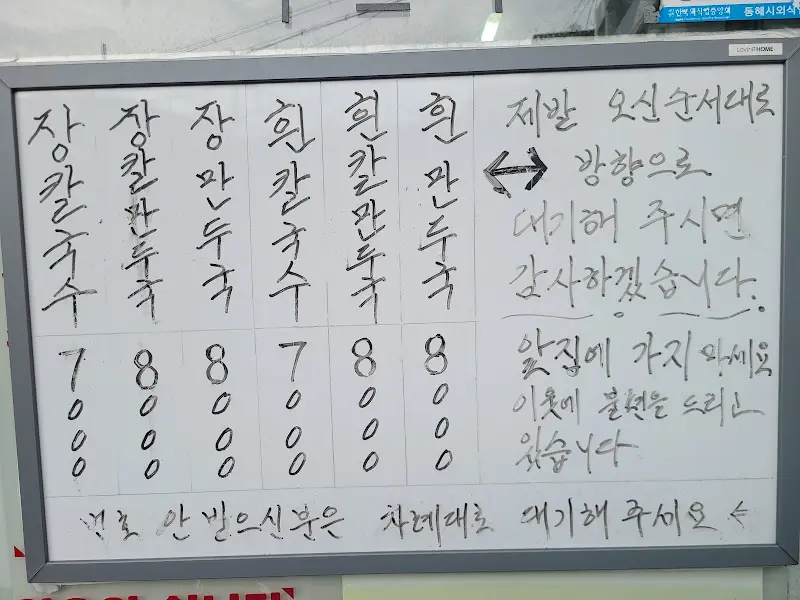 동해시외식
LOVING HOME
장칼국수 7000
장칼만두국 8000
장만두국 8000
흰칼국수 7000
흰칼만두국 8000
흰만두국 8000
제발 오신순서대로
↔ 방향으로
대기해 주시면
감사하겠습니다.
앞집에 가지 마세요
이웃에 불편을 드리고
있습니다
번호 안받으신분은 차례대로 대기해주세요 ←